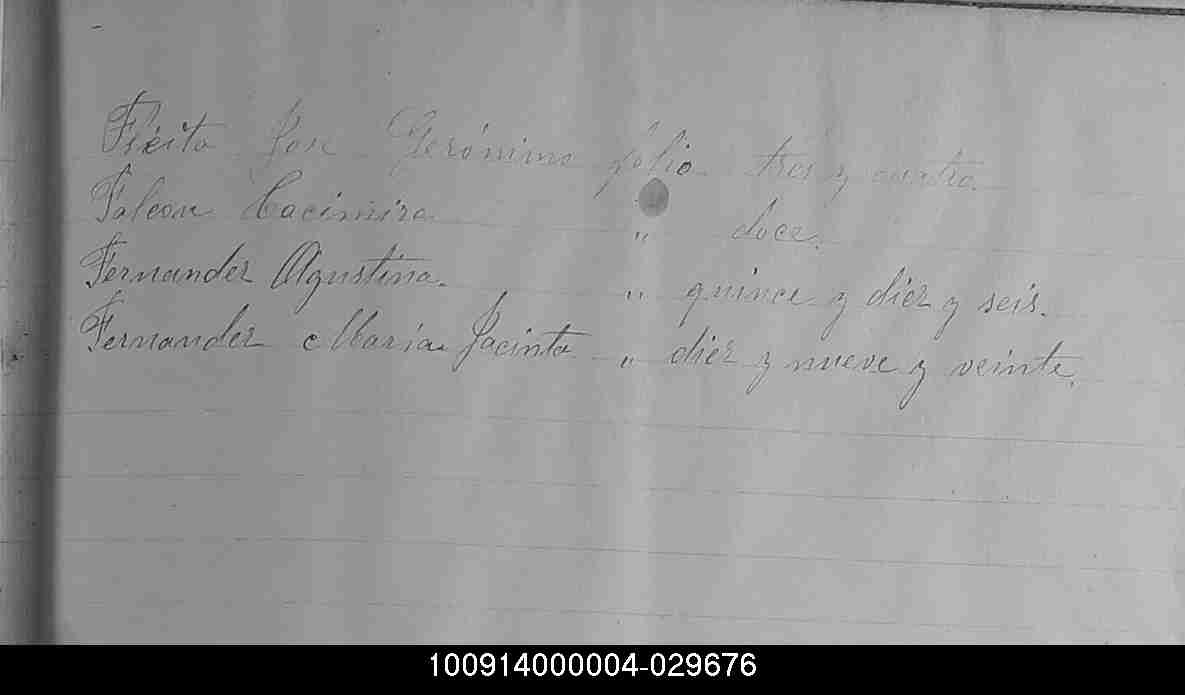 José Gerónimo folio tres y cuatro
Falcon Cacimira " doce.
Fernandez Agustina. " quince y diez y seis.
Fernandez Maria Jacinta " diez y nueve y veinte.
100914000004-029676